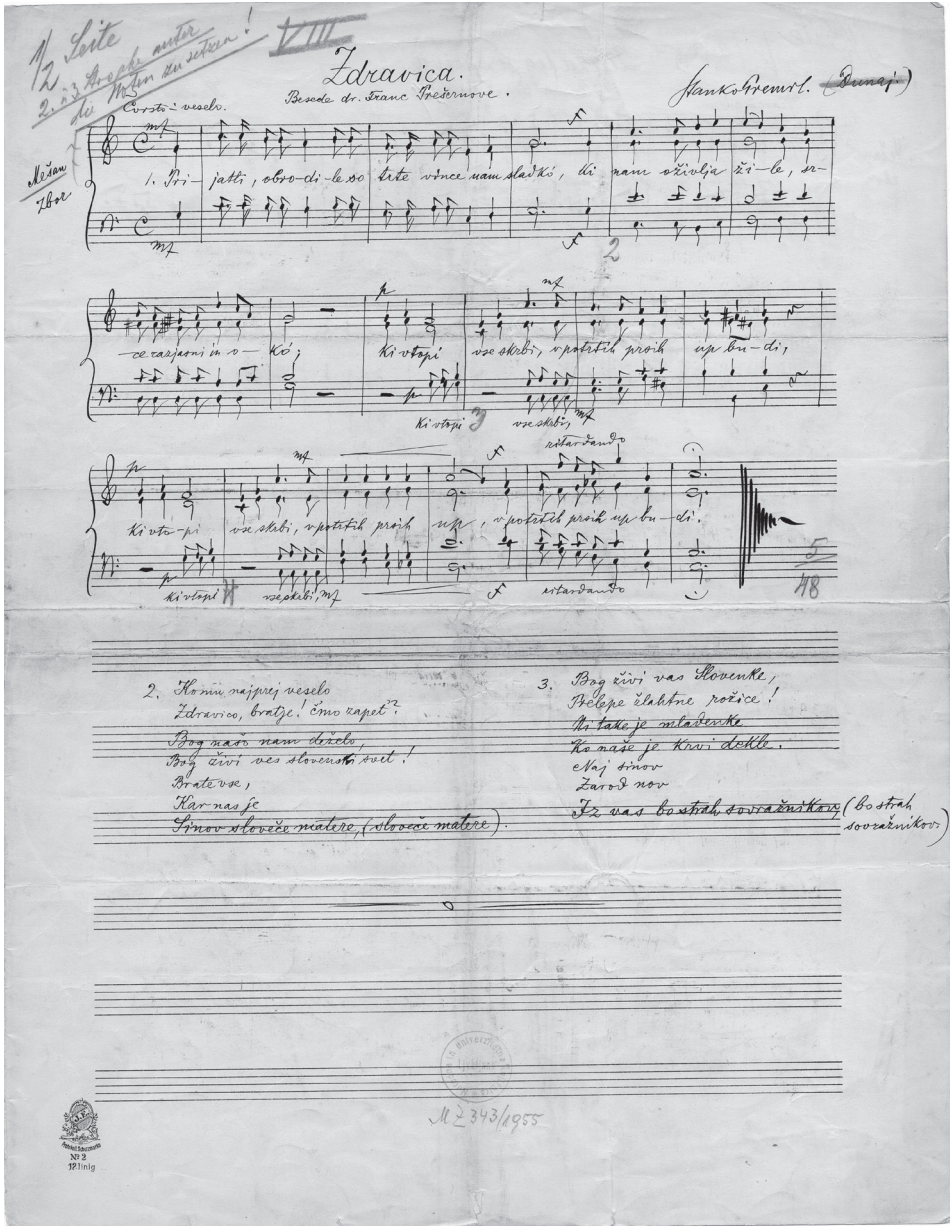 1/2 Seite
VIII
2. & 3. Strophe unter
die Noten zu setzen!
Zdravica.
Čvrsto i veselo.
Besede dr. Franc Prešernove.
Stanko Premrl. (Dunaj.)
Mešan
zbor
mf
f
1. Pri-jatli, obro-di-le so trte vince nam sladkó, ki nam oživlja ži-le, sr-
mf
f
2
p
mf
-ce razjasni in o-kó; Ki vtopi vse skrbi, v potrtih prsih up bu-di,
p
Ki vtopi
3
vse skrbi,
mf
ritardando
p
mf
f
Ki vto-pi vse skrbi, v potrtih prsih up, v potrtih prsih up bu-di.
p
Ki vtopi
4
vse skrbi,
mf
f
ritardando
5
48
2. Komu najprej veselo
Zdravico, bratje! čmo zapet'?
Bog našo nam deželo,
Bog živi ves slovenski svet!
Brate vse,
Kar nas je
Sinov sloveče matere, (sloveče matere).
3. Bog živi vas Slovenke,
Prelepe žlahtne rožice!
Ni take je mladenke
Ko naše je krvi dekle.
Naj sinov
Zarod nov
Iz vas bo strah sovražnikov, (bo strah
sovražnikov)
MZ 343/1955
J.E.
No 2
12 linig